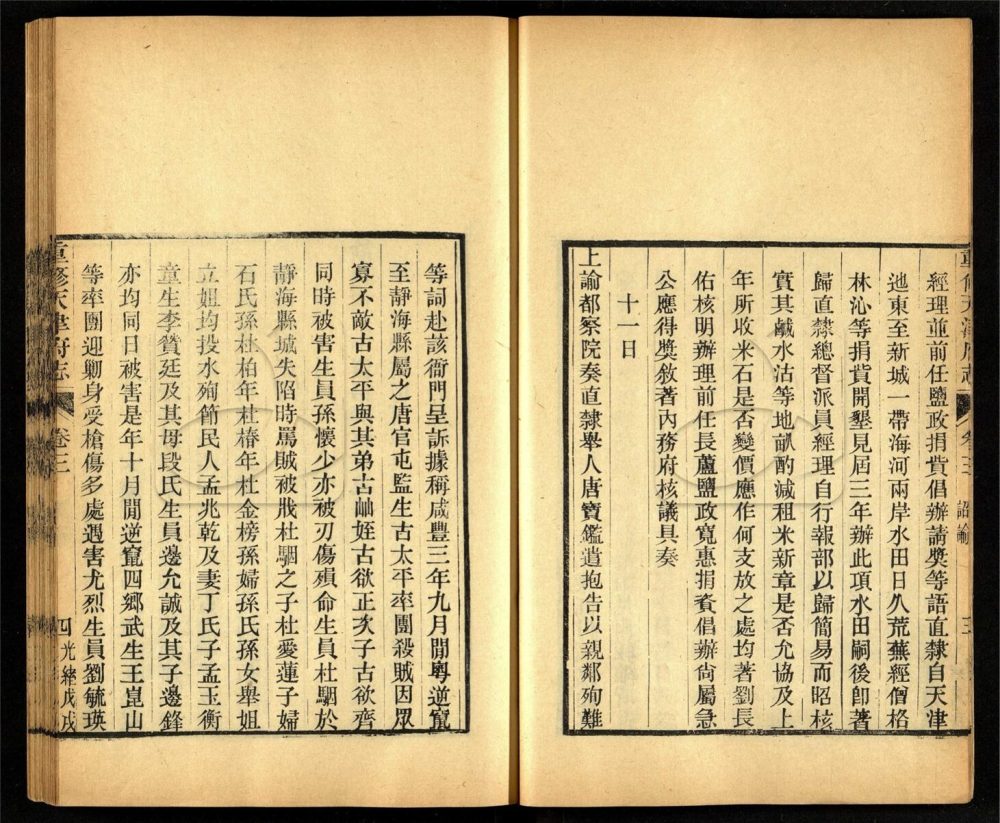 重修天津府志 卷三 詔諭 三
經理並前任鹽政捐貲倡辦請獎等語直隸自天津
鹹東至新城一帶海河兩岸水田日久荒蕪經僧格
林沁等捐貲開墾見屆三年辦此項水田嗣後卽著
歸直隸總督派員經理自行報部以歸簡易而昭核
實其鹹水沽等地畝酌減租米新章是否允協及上
年所收米石是否變價應作何支放之處均著劉長
佑核明辦理前任長蘆鹽政寬惠捐貲倡辦尙屬急
公應得獎敘著內務府核議具奏
十一日
上諭都察院奏直隸舉人唐寶鑑遣抱告以親鄰殉難
等詞赴該衙門呈訴據稱咸豐三年九月閒粵逆竄
至靜海縣屬之唐官屯監生古太平率團殺賊因眾
寡不敵古太平與其弟古訕姪古欲正次子古欲齊
同時被害生員孫懷少亦被刃傷殞命生員杜駰於
靜海縣城失陷時罵賊被戕杜駰之子杜愛蓮子婦
石氏孫杜柏年杜椿年杜金榜孫婦孫氏孫女舉姐
立姐均投水殉節民人孟兆乾及妻丁氏子孟玉衡
童生李贊廷及其母段氏生員邊允誠及其子邊鋒
亦均同日被害是年十月閒逆竄四鄉武生王崑山
等率團迎勦身受槍傷多處遇害尤烈生員劉毓瑛
重修天津府志 卷三 四 光緒戊戌